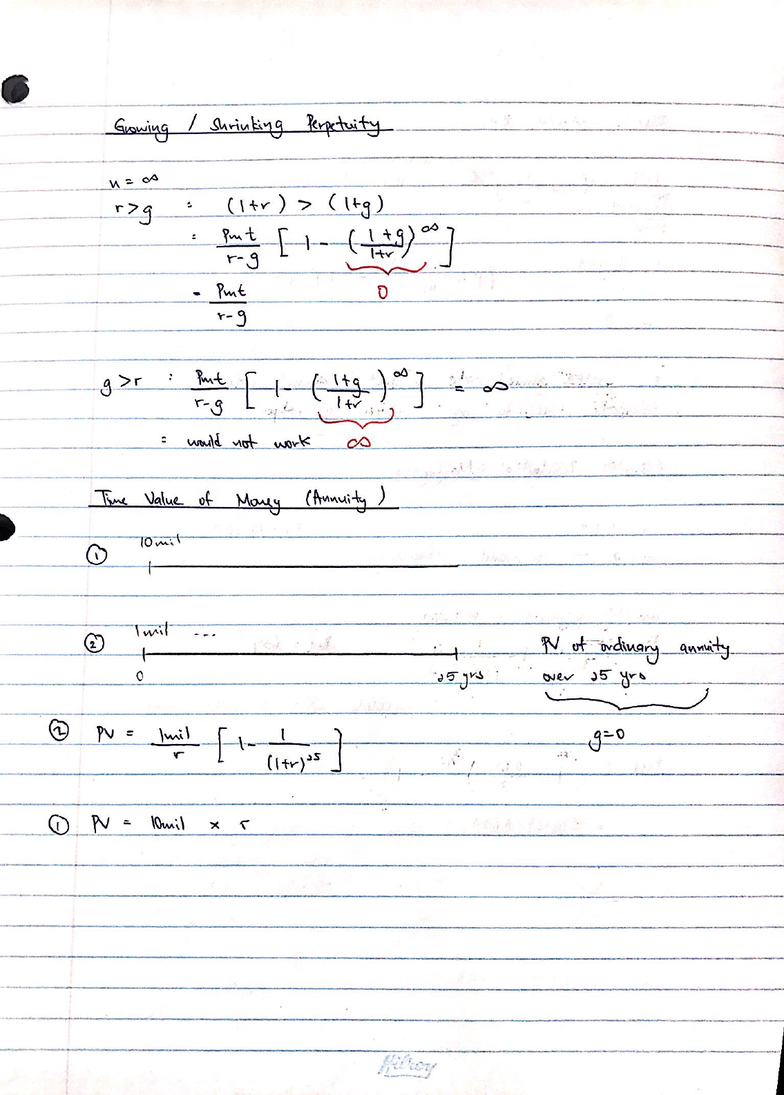 Growing / Shrinking Perpetuity
n = ∞
r>g : (1+r) > (1+g)
: Pmt/(r-g) [ 1 - ((1+g)/(1+r))^∞ ]
0
= Pmt/(r-g)
g>r : Pmt/(r-g) [ 1 - ((1+g)/(1+r))^∞ ] = ∞
∞
: would not work
Time Value of Money (Annuity)
① 10mil
② 1mil ...
0 25 yrs
PV of ordinary annuity
over 25 yrs
g=0
② PV = 1mil/r [ 1 - 1/(1+r)^25 ]
① PV = 10mil × r
Hilroy